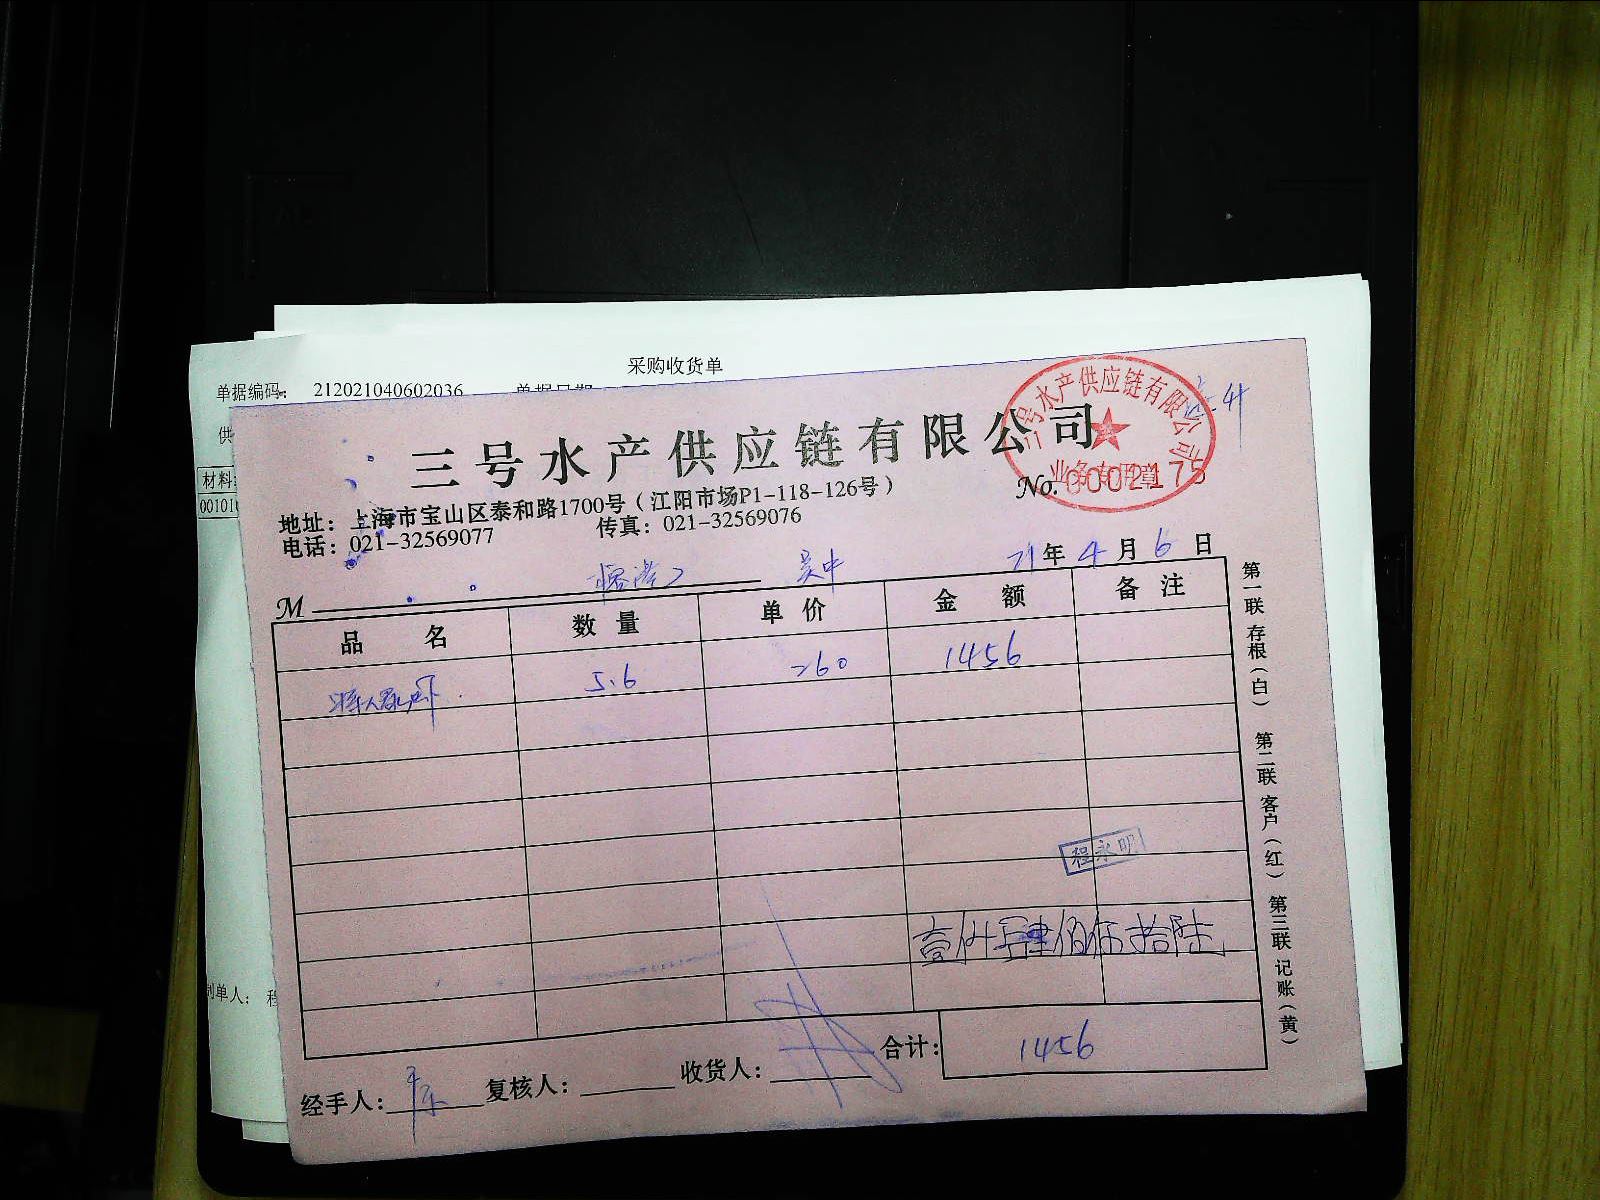 采购收货单
单据编码: 212021040602036
供
材料
制单人: 程
三号水产供应链有限公司
三号水产供应链有限公司
业务专用章
No. 0002175
地址：上海市宝山区泰和路1700号（江阳市场P1-118-126号）
电话：021-32569077 传真：021-32569076
M 吴中 21年4月6日
品名 数量 单价 金额 备注
5.6 260 1456
程永明
壹仟肆佰伍拾陆
合计: 1456
经手人: 复核人: 收货人:
第一联 存根（白） 第二联 客户（红） 第三联 记账（黄）